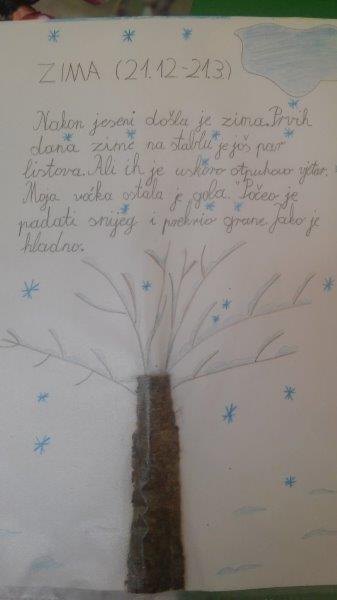 ZIMA (21.12-21.3.)
Nakon jeseni došla je zima. Prvih
dana zime na stablu je još par
listova. Ali ih je uskoro otpuhao vjetar.
Moja voćka ostala je gola. Počeo je
padati snijeg i prekrio grane. Jako je
hladno.